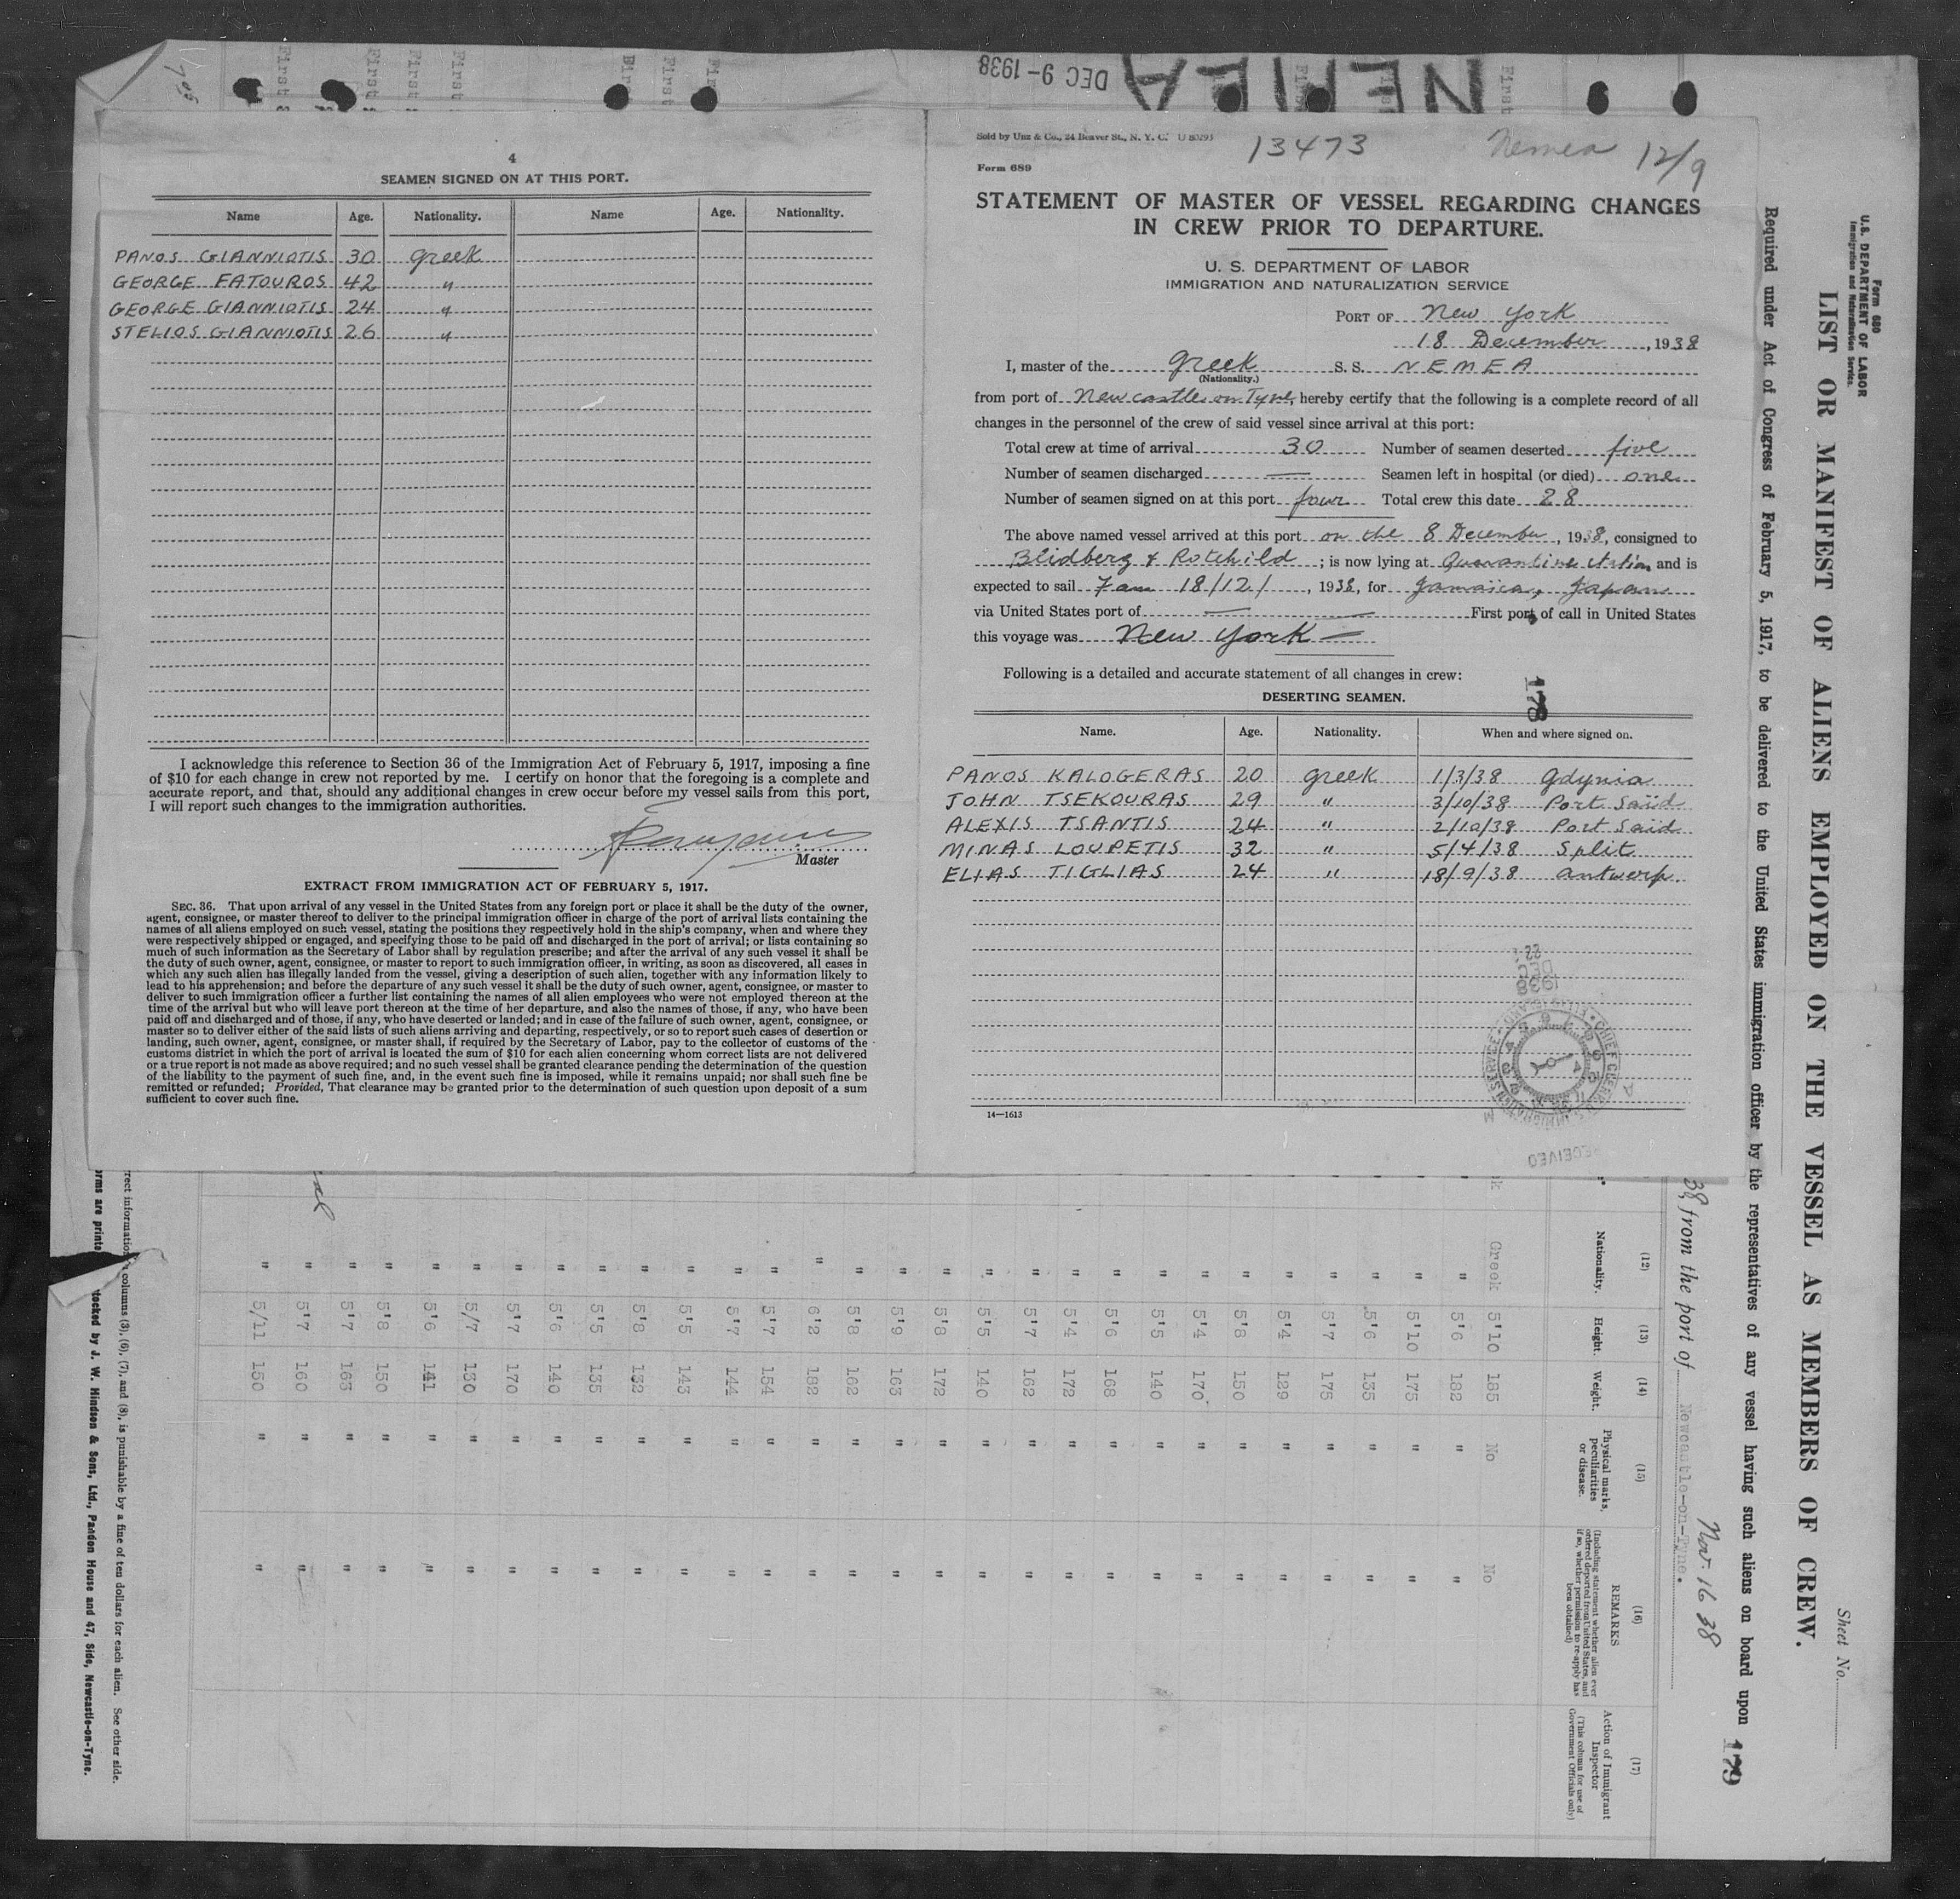 DEC 9-1938
NEMEA
4
SEAMEN SIGNED ON AT THIS PORT.
Name Age. Nationality. Name Age. Nationality.
PANOS GIANNIOTIS 30 Greek
GEORGE FATOUROS 42 "
GEORGE GIANNIOTIS 24 "
STELIOS GIANNIOTIS 26 "
I acknowledge this reference to Section 36 of the Immigration Act of February 5, 1917, imposing a fine
of $10 for each change in crew not reported by me. I certify on honor that the foregoing is a complete and
accurate report, and that, should any additional changes in crew occur before my vessel sails from this port,
I will report such changes to the immigration authorities.
Master
EXTRACT FROM IMMIGRATION ACT OF FEBRUARY 5, 1917.
SEC. 36. That upon arrival of any vessel in the United States from any foreign port or place it shall be the duty of the owner,
agent, consignee, or master thereof to deliver to the principal immigration officer in charge of the port of arrival lists containing the
names of all aliens employed on such vessel, stating the positions they respectively hold in the ship's company, when and where they
were respectively shipped or engaged, and specifying those to be paid off and discharged in the port of arrival; or lists containing so
much of such information as the Secretary of Labor shall by regulation prescribe; and after the arrival of any such vessel it shall be
the duty of such owner, agent, consignee, or master to report to such immigration officer, in writing, as soon as discovered, all cases in
which any such alien has illegally landed from the vessel, giving a description of such alien, together with any information likely to
lead to his apprehension; and before the departure of any such vessel it shall be the duty of such owner, agent, consignee, or master to
deliver to such immigration officer a further list containing the names of all alien employees who were not employed thereon at the
time of the arrival but who will leave port thereon at the time of her departure, and also the names of those, if any, who have been
paid off and discharged and of those, if any, who have deserted or landed; and in case of the failure of such owner, agent, consignee, or
master so to deliver either of the said lists of such aliens arriving and departing, respectively, or so to report such cases of desertion or
landing, such owner, agent, consignee, or master shall, if required by the Secretary of Labor, pay to the collector of customs of the
customs district in which the port of arrival is located the sum of $10 for each alien concerning whom correct lists are not delivered
or a true report is not made as above required; and no such vessel shall be granted clearance pending the determination of the question
of the liability to the payment of such fine, and, in the event such fine is imposed, while it remains unpaid; nor shall such fine be
remitted or refunded; Provided, That clearance may be granted prior to the determination of such question upon deposit of a sum
sufficient to cover such fine.
Sold by Unz & Co., 24 Beaver St., N. Y. C. U 80293
13473 Nemea 12/9
Form 689
STATEMENT OF MASTER OF VESSEL REGARDING CHANGES
IN CREW PRIOR TO DEPARTURE.
U. S. DEPARTMENT OF LABOR
IMMIGRATION AND NATURALIZATION SERVICE
PORT OF New York
18 December, 1938
I, master of the Greek S. S. NEMEA
(Nationality.)
from port of Newcastle on Tyne, hereby certify that the following is a complete record of all
changes in the personnel of the crew of said vessel since arrival at this port:
Total crew at time of arrival 30 Number of seamen deserted five
Number of seamen discharged — Seamen left in hospital (or died) one
Number of seamen signed on at this port four Total crew this date 28
The above named vessel arrived at this port on the 8 December, 1938, consigned to
Blidberg & Rotchild; is now lying at Quarantine Station and is
expected to sail 7am 18/12/, 1938, for Jamaica, Japan
via United States port of — First port of call in United States
this voyage was New York —
Following is a detailed and accurate statement of all changes in crew:
178
DESERTING SEAMEN.
Name. Age. Nationality. When and where signed on.
PANOS KALOGERAS 20 Greek 1/3/38 Gdynia
JOHN TSEKOURAS 29 " 3/10/38 Port Said
ALEXIS TSANTIS 24 " 2/10/38 Port Said
MINAS LOUPETIS 32 " 5/4/38 Split
ELIAS TIGLIAS 24 " 18/9/38 Antwerp.
1938
DEC
14—1613
Form 680
U.S. DEPARTMENT OF LABOR
Immigration and Naturalization Service.
Sheet No.
LIST OR MANIFEST OF ALIENS EMPLOYED ON THE VESSEL AS MEMBERS OF CREW.
Required under Act of Congress of February 5, 1917, to be delivered to the United States immigration officer by the representatives of any vessel having such aliens on board upon
179
Nov. 16 38
38, from the port of Newcastle-on-Tyne.
(12) (13) (14) (15) (16) (17)
Nationality. Height. Weight. Physical marks, peculiarities or disease. REMARKS (Including statement whether alien ever ordered deported from United States, and if so, whether permission to re-apply has been obtained) Action of Immigrant Inspector (This column for use of Government Officials only)
Greek 5'10 185 No No
" 5'6 182 " "
" 5'10 175 " "
" 5'6 135 " "
" 5'7 175 " "
" 5'4 129 " "
" 5'8 150 " "
" 5'4 170 " "
" 5'5 140 " "
" 5'6 168 " "
" 5'4 172 " "
" 5'7 162 " "
" 5'5 140 " "
" 5'8 172 " "
" 5'9 163 " "
" 5'8 162 " "
" 6'2 182 " "
" 5'7 154 " "
" 5'7 144 " "
" 5'5 143 " "
" 5'8 132 " "
" 5'5 135 " "
" 5'6 140 " "
" 5'7 170 " "
" 5/7 130 " "
" 5'6 141 " "
" 5'8 150 " "
" 5'7 163 " "
" 5'7 160 " "
" 5/11 150 " "
columns (3), (6), (7), and (8), is punishable by a fine of ten dollars for each alien. See other side.
stocked by J. W. Hindson & Sons, Ltd., Pandon House and 47, Side, Newcastle-on-Tyne.